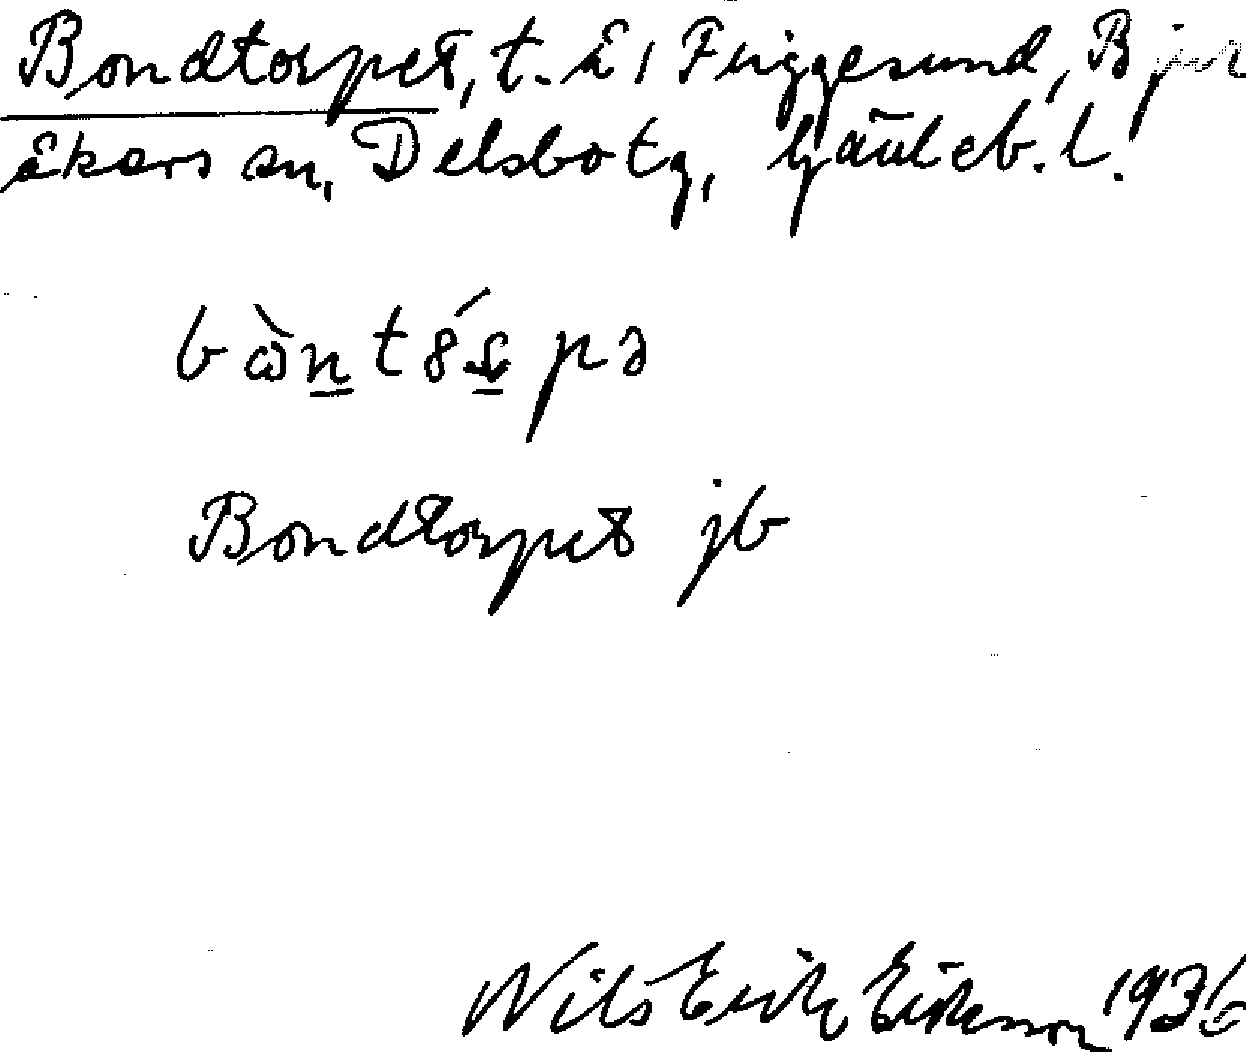 Bondtorpet, t. å, Friggesund, Bjur
åkers sn, Delsbo tg, Gävleb. l.
Bondtorpet jb
Nils Erik Eriksson 1936